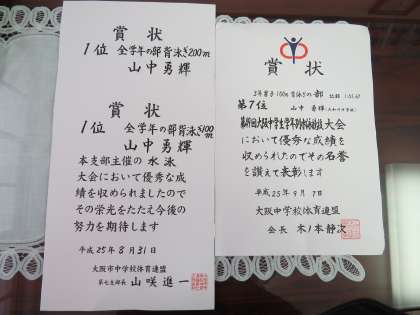 賞状
1位 全学年の部背泳ぎ200m
山中勇輝
賞状
1位 全学年の部背泳ぎ100m
山中勇輝
本支部主催の 水泳
大会において優秀な成
績を収められましたので
その栄光をたたえ今後の
努力を期待します
平成25年8月31日
大阪市中学校体育連盟
第七支部長 山咲進一
賞状
3年男子100m背泳ぎの部
第7位 山中勇輝
大会
において優秀な成績を
収められたのでその名誉
を讃えて表彰します
平成25年9月7日
大阪中学校体育連盟
会長 木ノ本静次